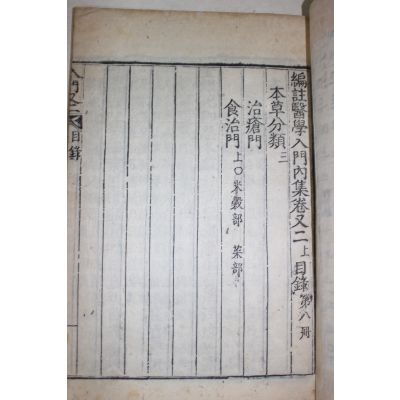 編註醫學入門內集卷又二上目錄 第八冊
本草分類三
治瘡門
食治門上〇米穀部 菜部
入門又二 目錄